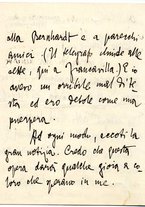 alla Bernhardt e a parecchi
amici (Il telegrafo chiude alle
sette, qui a Francavilla.) E io
avevo un orribile mal di te-
sta ed ero debole come una
puerpera.
Ad ogni modo, eccoti la
gran notizia. Credo che questa
opera darà qualche gioia a co-
loro che sperano in me.